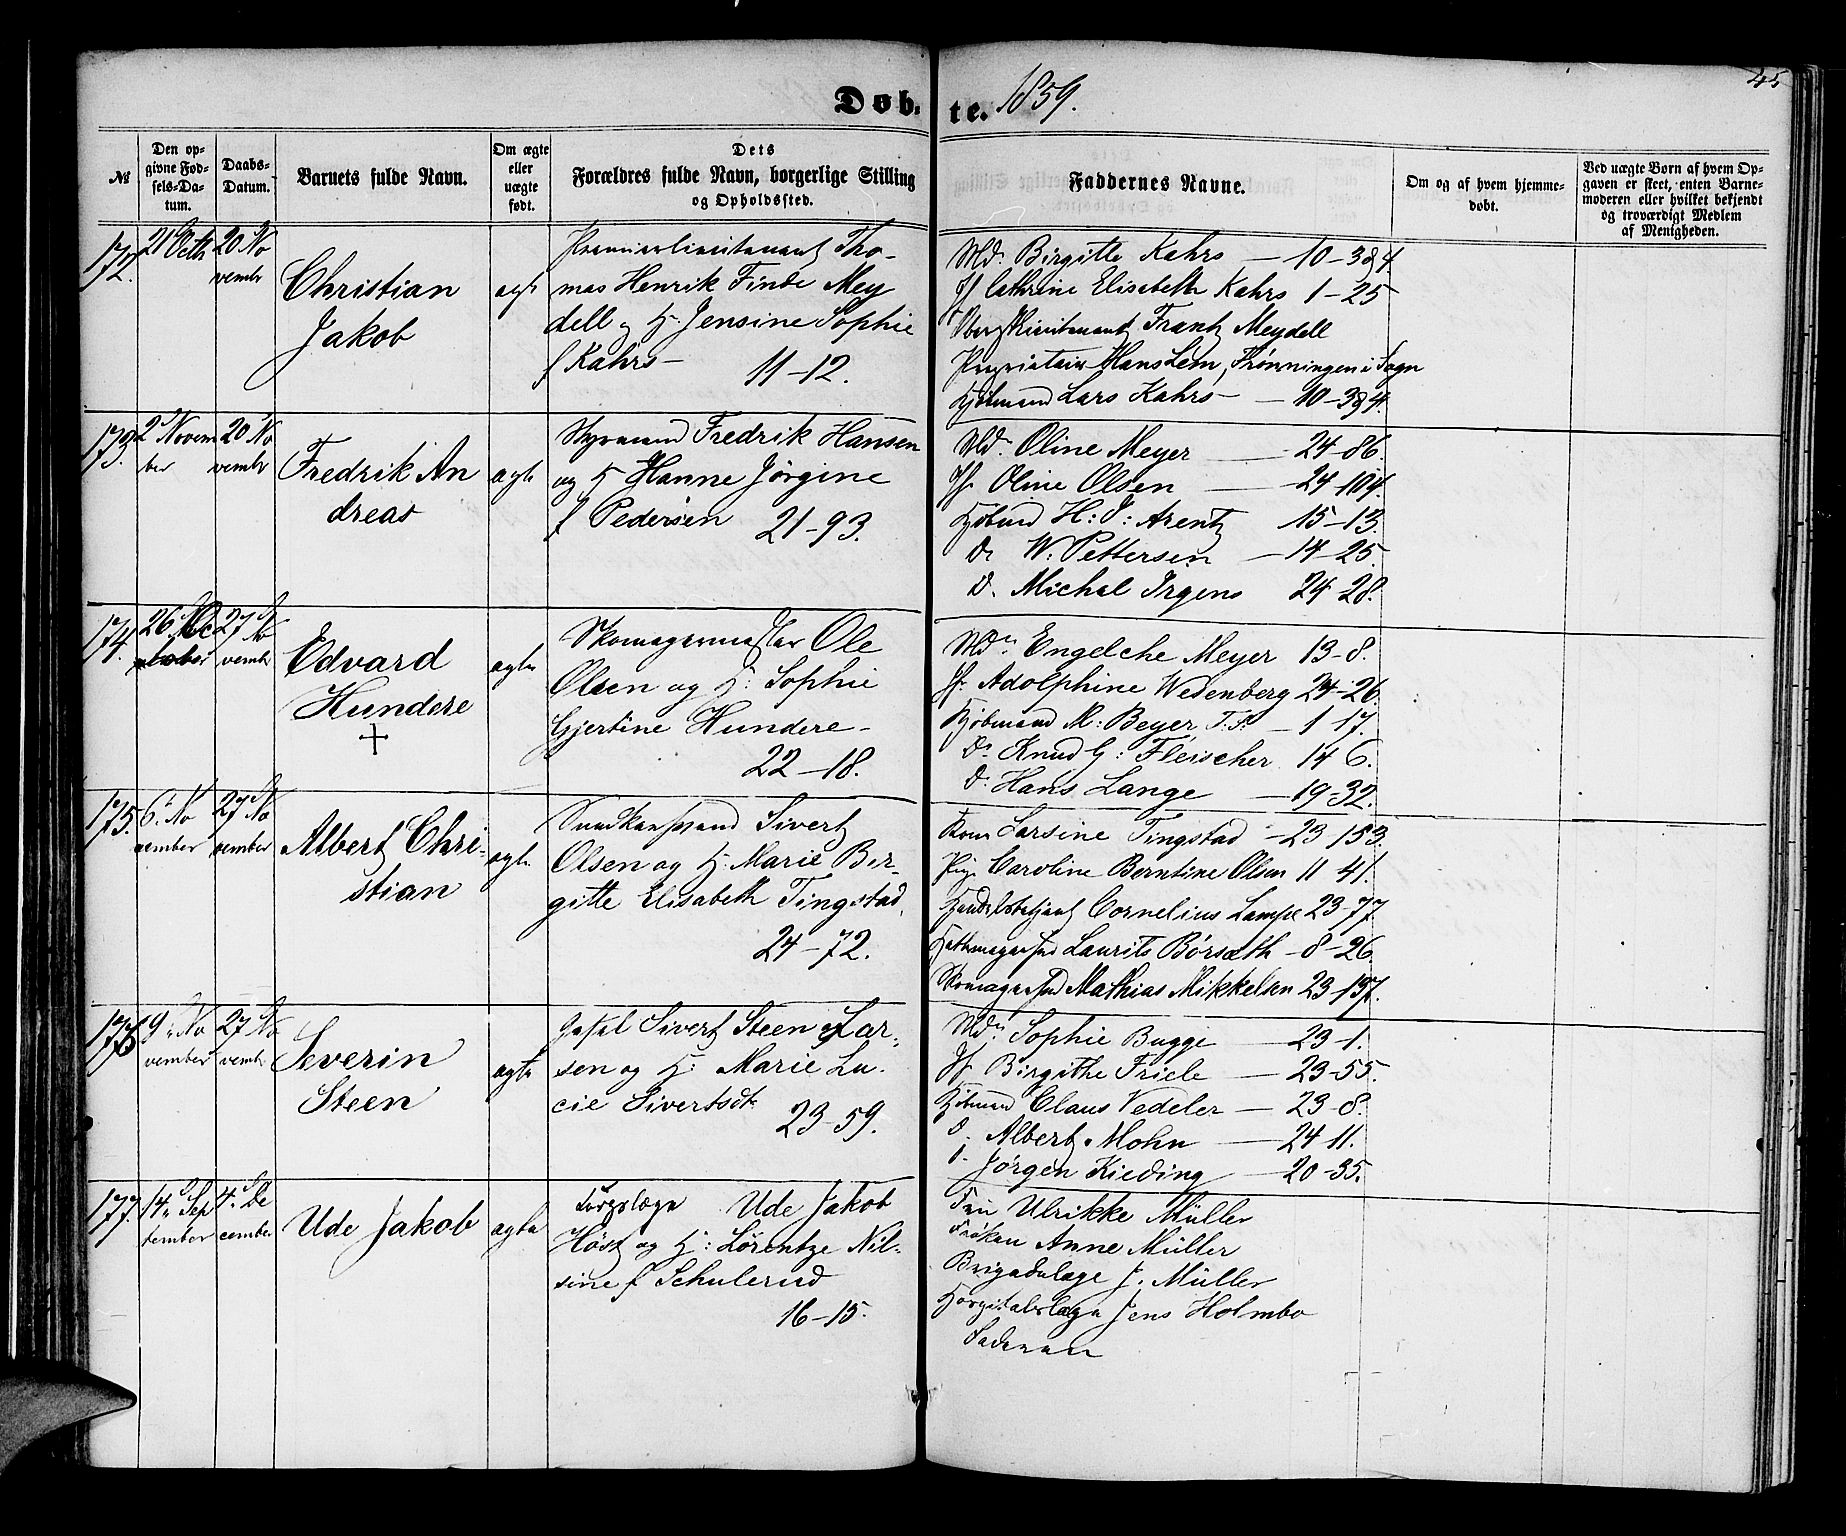 Døb- te. 1859.
45
№
Den op-
givne Fød-
sels-Da-
tum.
Daabs-
Datum.
Barnets fulde Navn.
Om ægte
eller
uægte
født.
Dets
Forældres fulde Navn, borgerlige Stilling
og Opholdssted.
Faddernes Navne.
Om og af hvem hjemme-
døbt.
Ved uægte Børn af hvem Op-
gaven er skeet, enten Barne-
moderen eller hvilket bekjendt
og troværdigt Medlem
af Menigheden.
172.
21 Octb
20 No
vembr
Christian
Jakob
ægte
Premierlieutenant Tho-
mas Henrik Finde Mey
dell og H. Jensine Sophie
f Kahrs-
11-12.
Md. Birgitte Kahrs - 10-3&4.
Jf Cathrine Elisabeth Kahrs 1-25
Frantz Meydell
Proprietair Hans Lem, i Sogn
Kjøbmand Lars Kahrs - 10-3&4.
173.
2 Novem
ber
20 No
vembr
Fredrik An
dreas
ægte
Styrmand Fredrik Hansen
og H Hanne Jørgine
f Pedersen 21-93.
Md. Oline Meyer - 24-86.
Jf. Oline Olsen - 24-104.
Kjøbmd H: D: Arentz 15-13.
Do W. Pettersen - 14-25.
D. Michal Irgens 24-28.
174.
26
27 No
vembr
Edvard
Hundere
†
ægte
Skomagermester Ole
Olsen og H: Sophie
Gjertine Hundere-
22-18.
Md. Engelche Meyer 13-8.
Jf. Adolphine Wedenberg 24-26.
Kjøbmand M: Beyer, - 1-17.
Do Knud G: Fleischer 14 6.
D. Hans Lange - 19-32.
175.
6. No
vember
27 No
vember
Albert Chri-
stian
ægte
Sivert
Olsen og H. Marie Bir-
gitte Elisabeth Tingstad,
24-72.
Kone Larsine Tingstad - 23-153.
Pige Caroline Berntine Olsen 11 41.
Handelsbetjent Cornelius Lampe 23-77.
Laurits Børsæth - 8-26.
Skomagersvd Mathias Mikkelsen 23-137.
176
9. No
vember
27 No
vembr
Severin
Steen
ægte
Sivert Steen Lar-
sen og H: Marie Lu-
cie Sivertsdtr
23-59.
Md. Sophie Bugge - 23-1.
Jf. Birgithe Friele - 23-55.
Kjøbmand Claus Vedeler - 23-8.
D. Albert Mohn - 24-11.
D. Jørgen Kieding - 20-35.
177.
14. Sep
tember
4. De
cember
Ude Jakob
ægte
Korpslæge Ude Jakob
Høst og H: Lorentze Nil-
sine f Schulerud
16-15.
Fru Ulrikke Müller
Frøken Anne Müller
Brigadelæge J. Müller
Hospitalslæge Jens Holmbo
Faderen